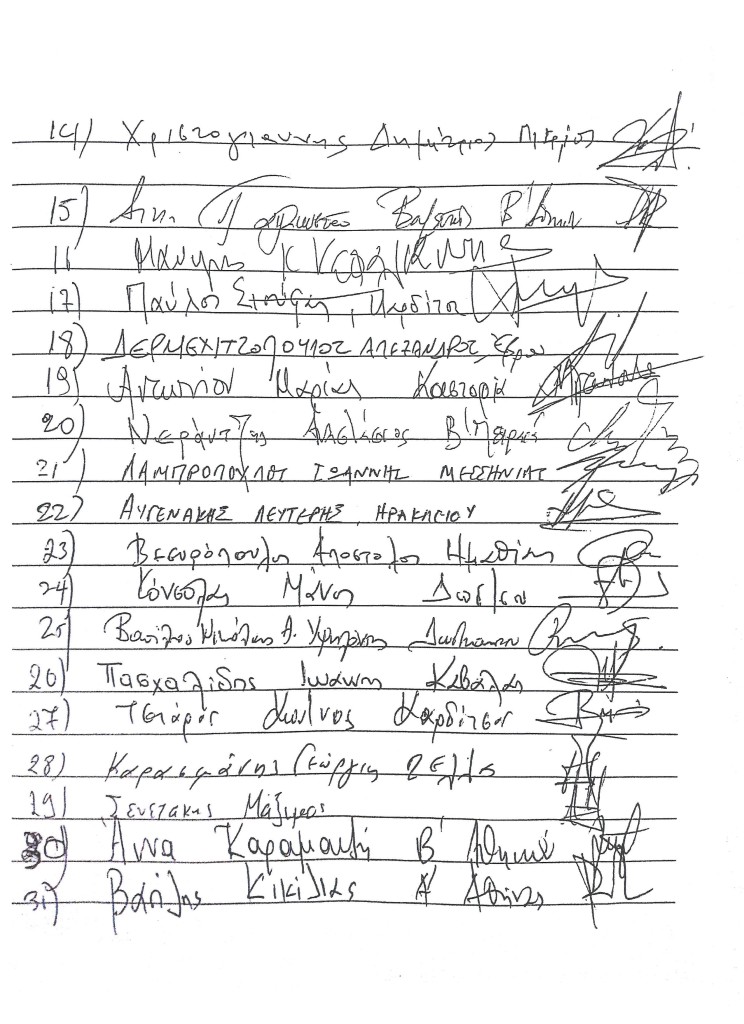 14) Χριστογιαννης Δημήτριος Πιερίας
15)
16 Μανώλης Κ Κεφαλογιάννης
17) Παύλος Σιούφας, Καρδίτσα
18) ΔΕΡΜΕΧΙΤΖΟΠΟΥΛΟΣ ΑΛΕΞΑΝΔΡΟΣ Έβρου
19) Αντωνίου Μαρία Καστοριά
20) Νεράντζης Αναστάσιος Β' Πειραιά
21) ΛΑΜΠΡΟΠΟΥΛΟΣ ΙΩΑΝΝΗΣ ΜΕΣΣΗΝΙΑΣ
22) ΑΥΓΕΝΑΚΗΣ ΛΕΥΤΕΡΗΣ, ΗΡΑΚΛΕΙΟΥ
23) Βεσυρόπουλος Αποστολος Ημαθίας
24) Κόνσολας Μάνος Δωδ/σου
25) Βασίλειος Νικόλαος Α. Υψηλάντης Δωδεκανήσου
26) Πασχαλίδης Ιωάννης Καβάλας
27) Τσιάρας Κων/νος Καρδίτσας
28) Καρασμάνης Γεώργιος Πέλλας
29) Σενετακης Μάξιμος
30) Άννα Καραμανλή Β' Αθηνών
31) Βασίλης Κικίλιας Α' Αθήνας